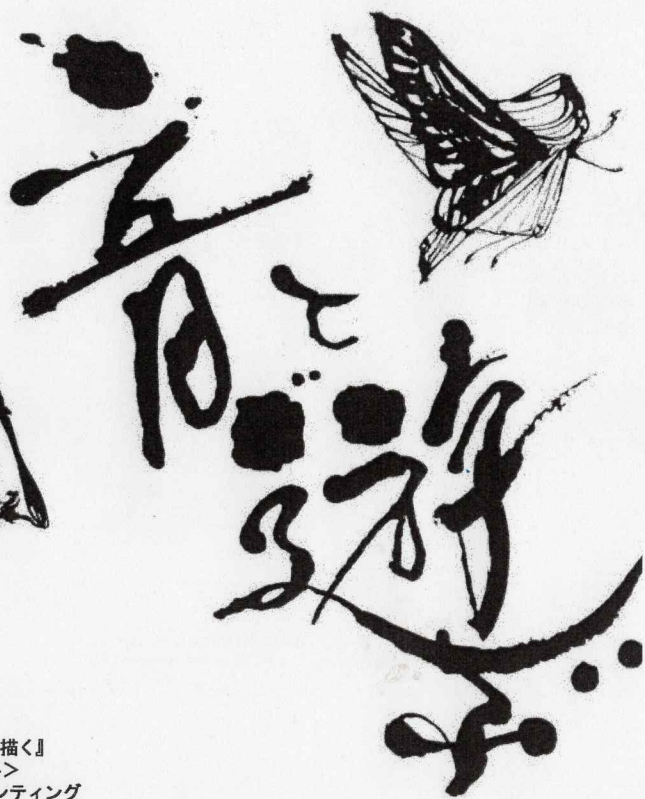 音
と
遊
ぶ
描く』
>
ンティング